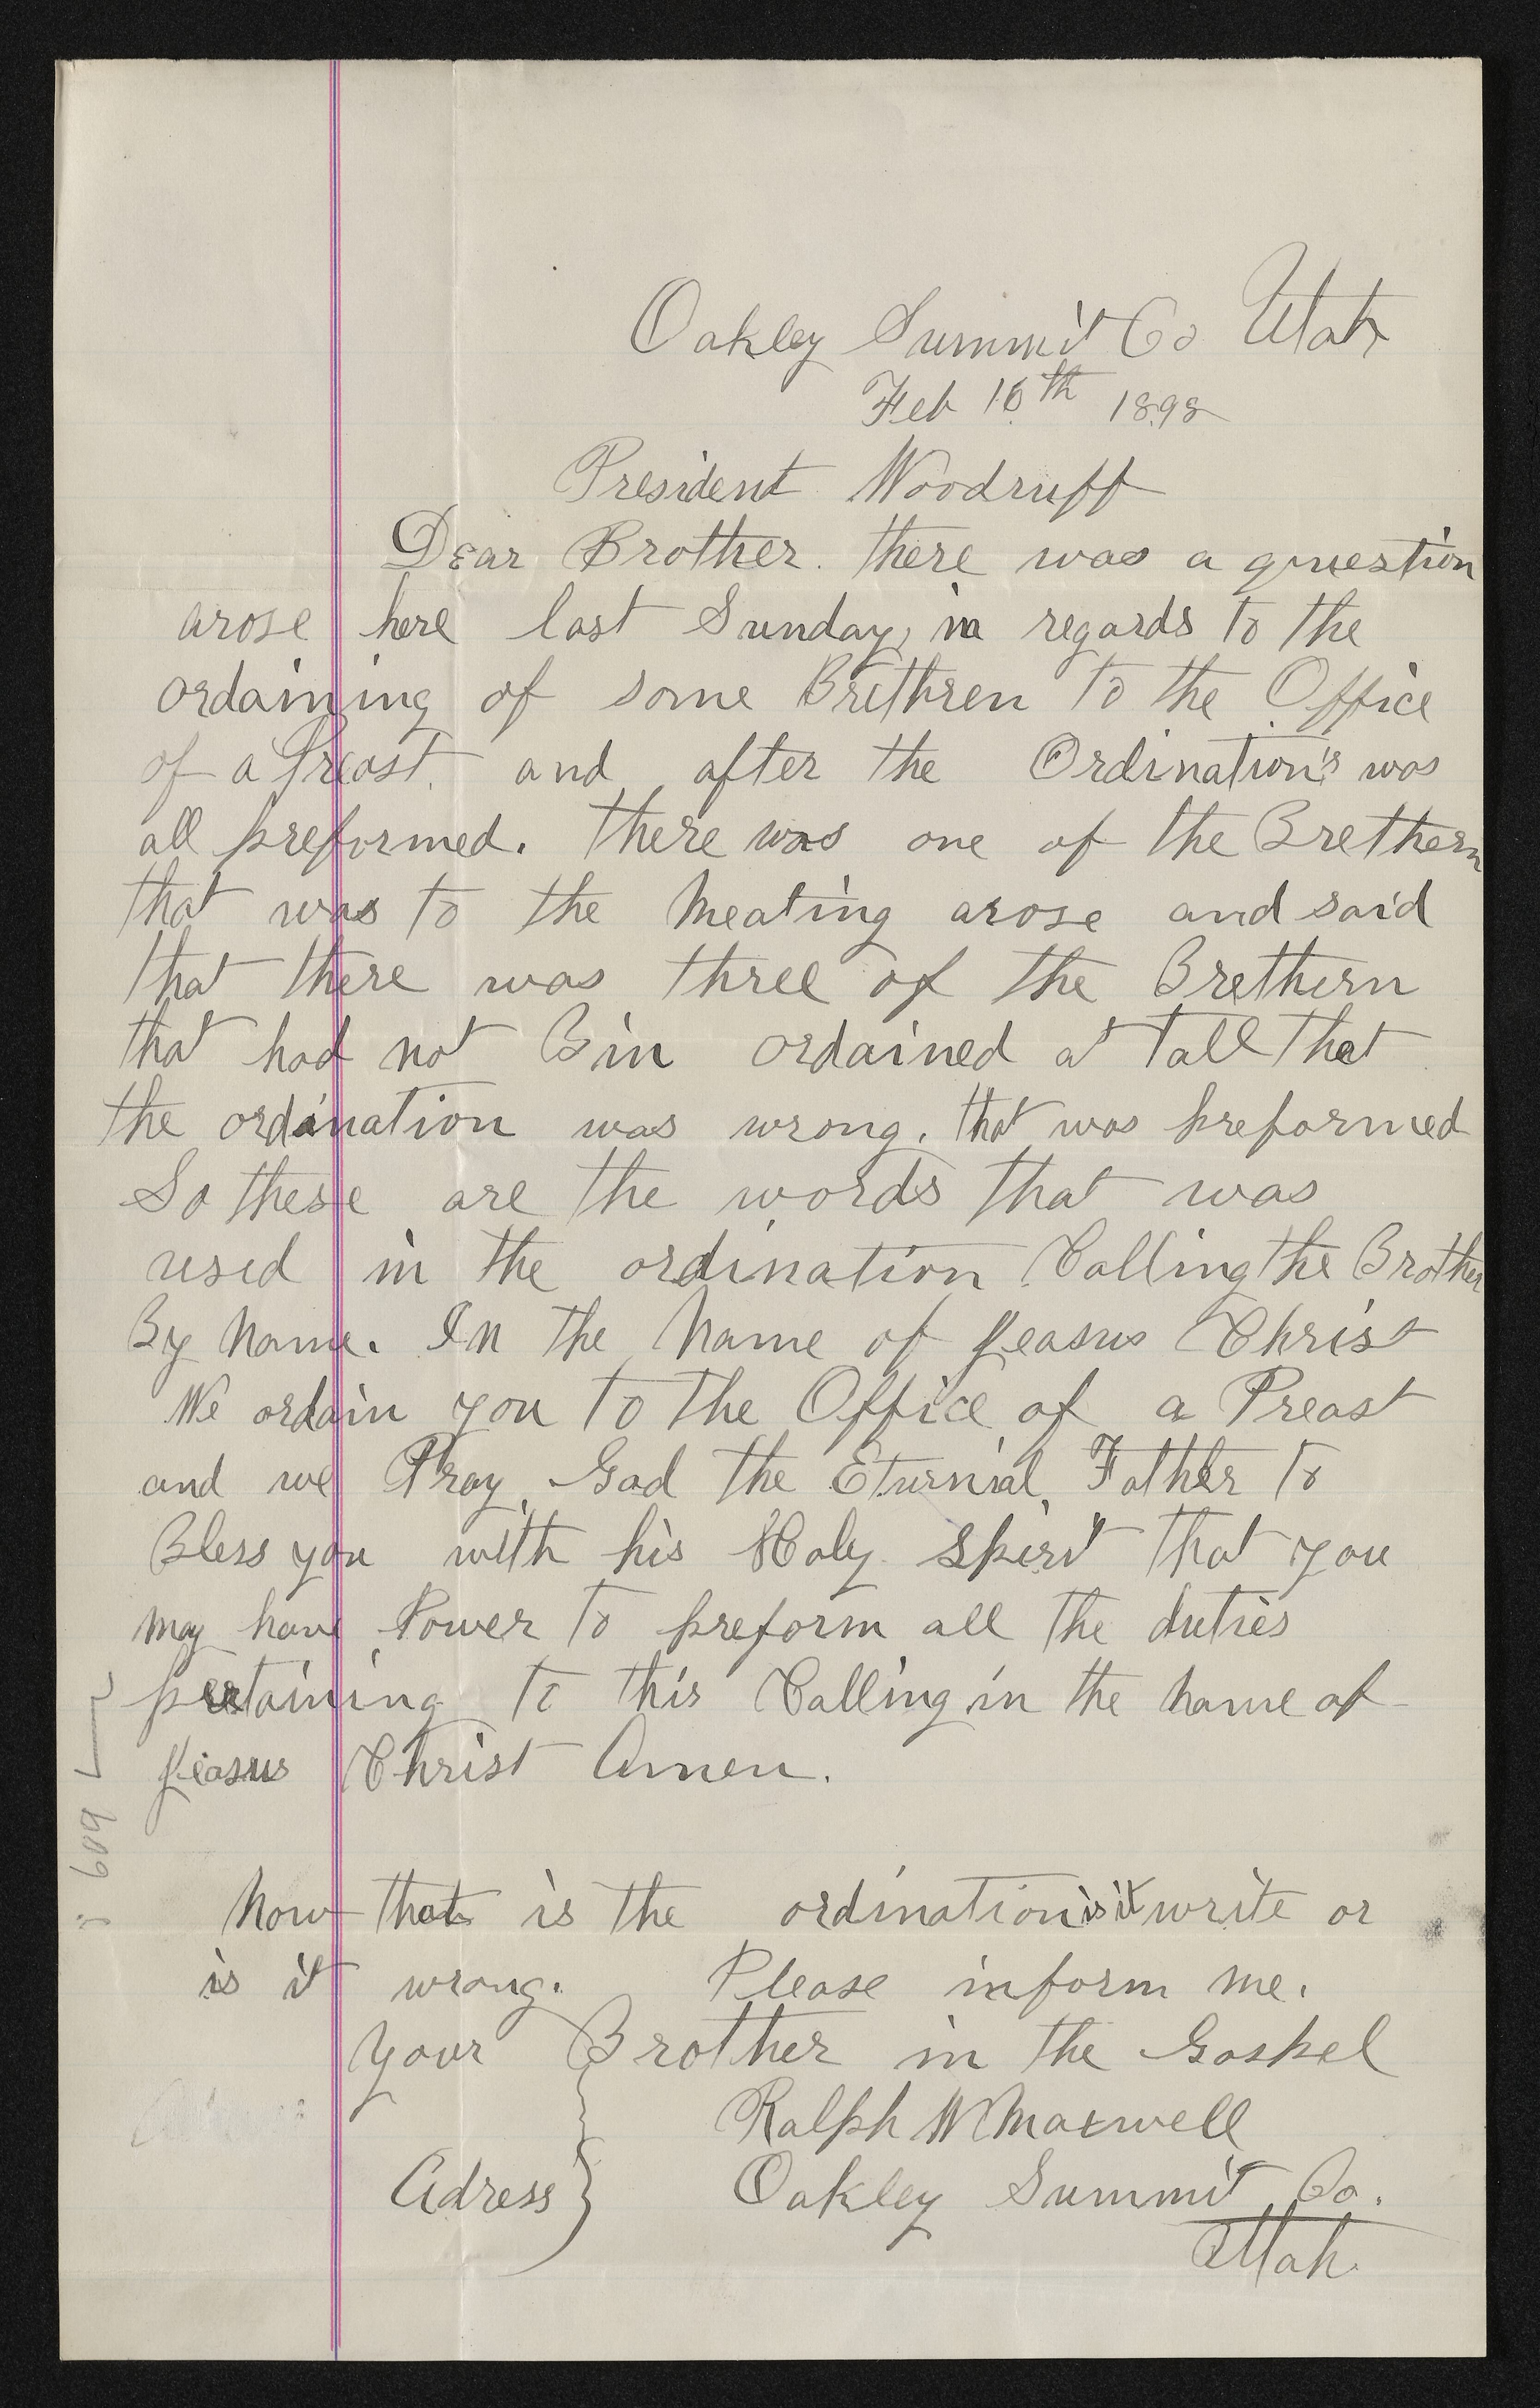 Oakley Summit Co Utah
Feb 16th 1898
President Woodruff
Dear Brother. there was a question
arose here last Sunday, in regards to the
ordaining of some Brethren to the Office
of a Preast. and after the Ordination's was
all preformed. there was one of the Brethern
that was to the Meating arose and said
that there was three of the Brethern
that had not Bin ordained at tall that
the ordination was wrong. that was preformed
So these are the words that was
used in the ordination Calling the Brother
By Name. In the Name of Jeasus Christ
We ordain you to the Office of a Preast
and we Pray God the Eturnial Father to
Bless you with his Holy Spirit that you
may have Power to preform all the duties
pertaining to this Calling in the Name of
Jeasus Christ Amen.
Now that is the ordination is it write or
is it wrong. Please inform me.
Your Brother in the Gospel
Ralph W Maxwell
Adress } Oakley Summit Co.
Utah
609